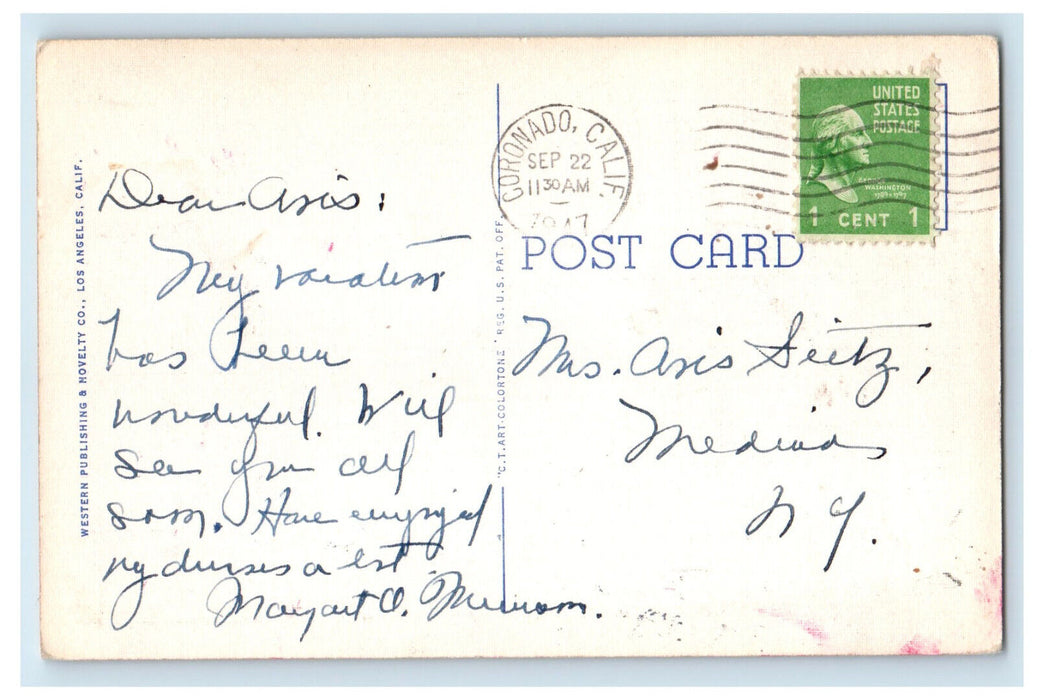 WESTERN PUBLISHING & NOVELTY CO., LOS ANGELES, CALIF.
Dear Avis:
My vacation
has been
wonderful. Will
see you all
soon. Have enjoyed
my dresses a lot
Margaret O.
"C.T. ART-COLORTONE" REG. U.S. PAT. OFF.
CORONADO, CALIF.
SEP 22
11 30 AM
1947
UNITED
STATES
POSTAGE
GEORGE
WASHINGTON
1789-1797
1 CENT 1
POST CARD
Mrs. Avis Seitz,
Medina
N Y.